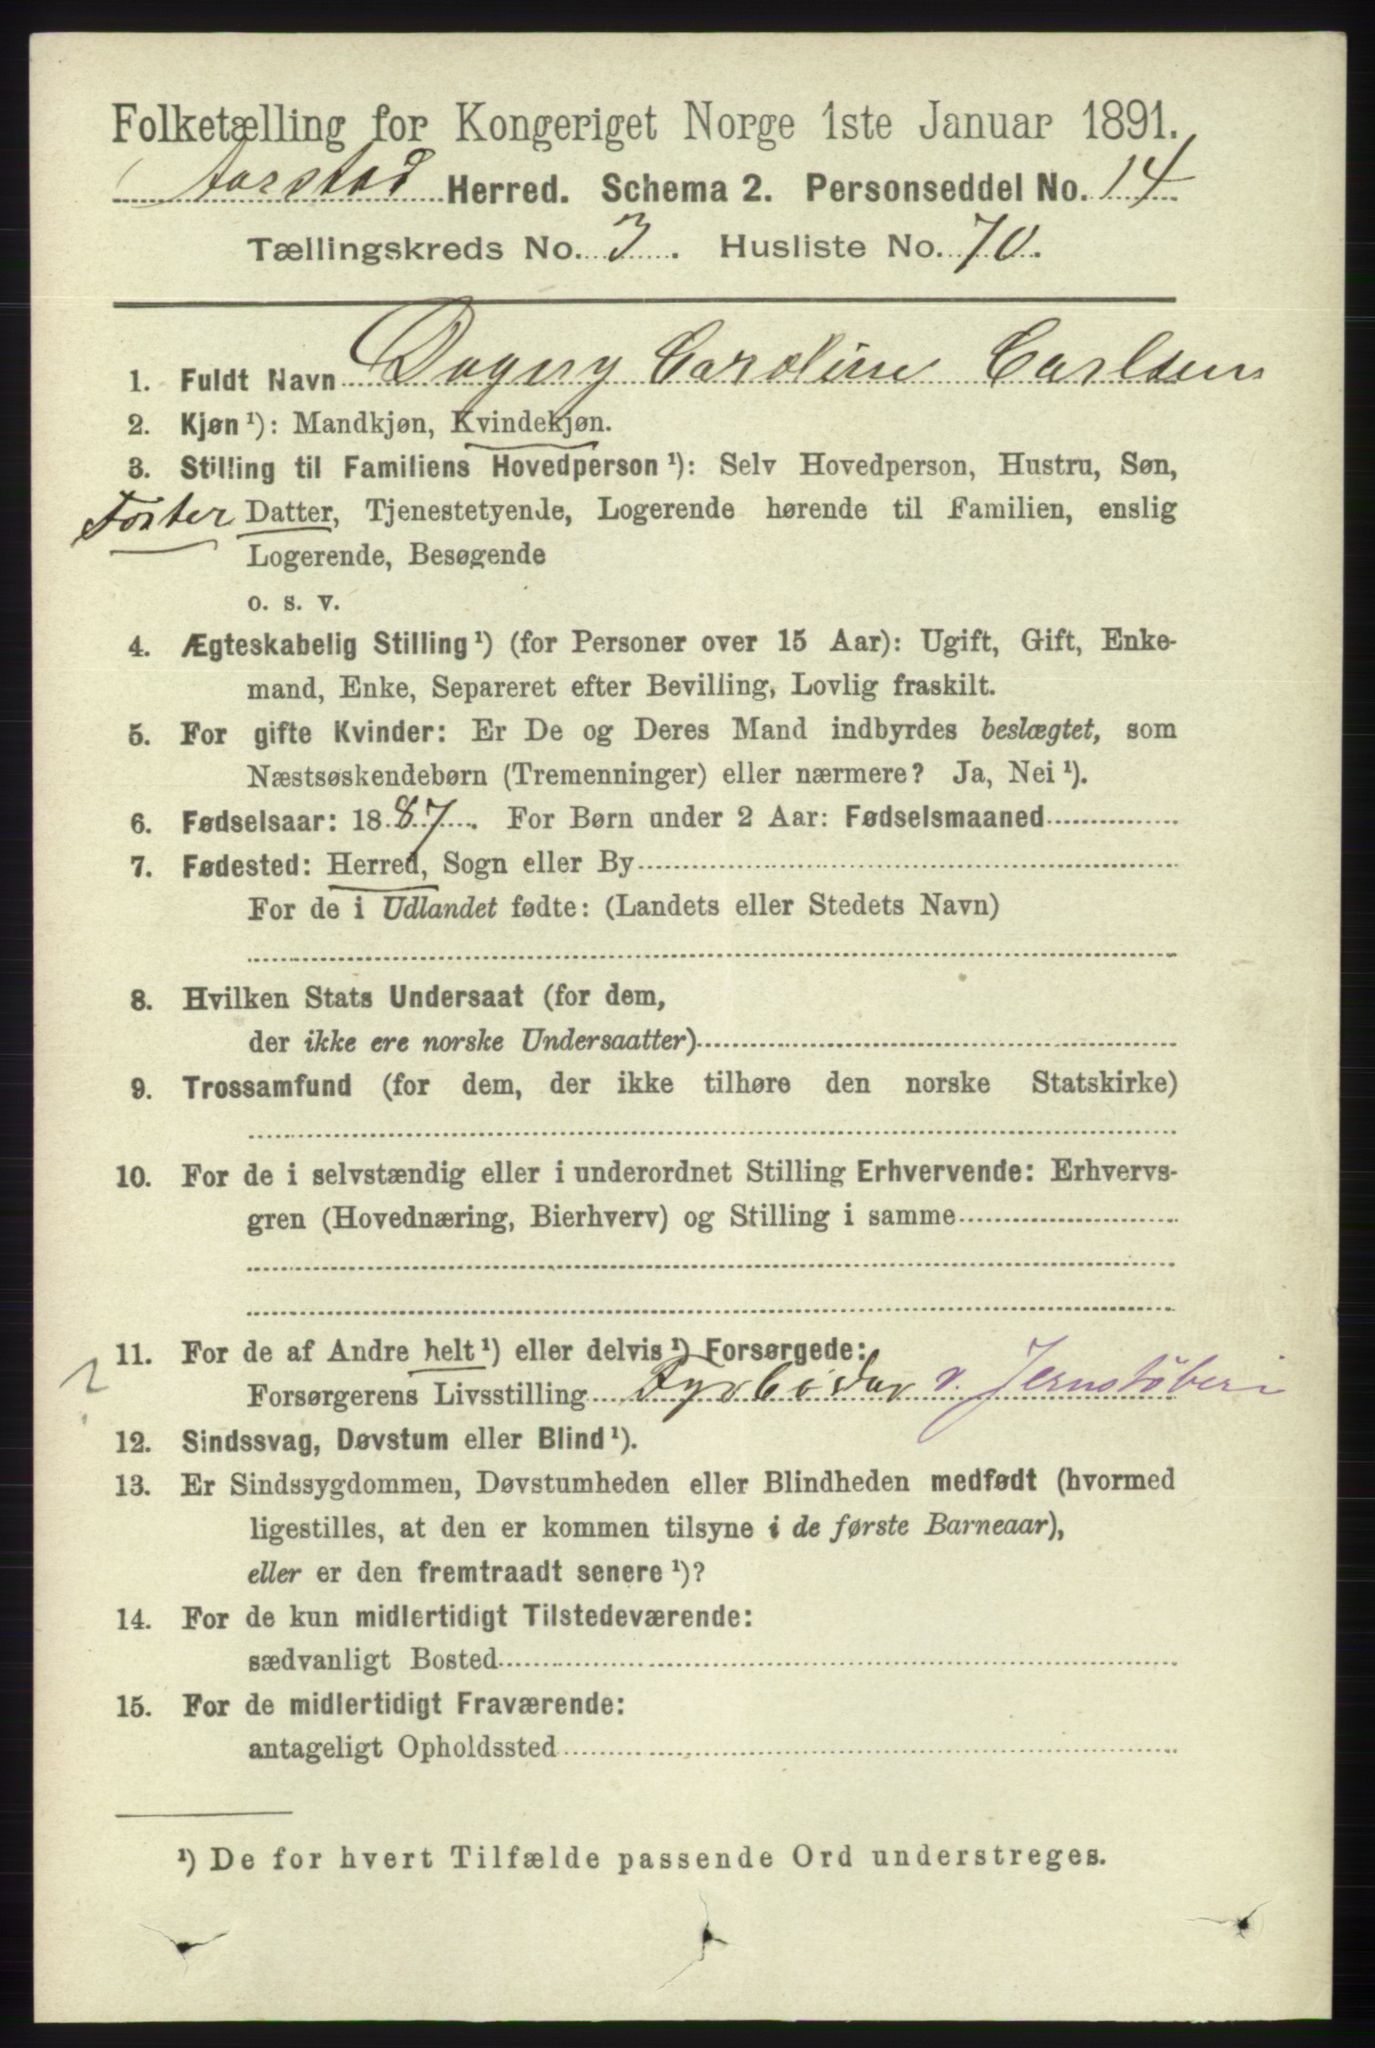 Folketælling for Kongeriget Norge 1ste Januar 1891.
Aarstad Herred. Schema 2. Personseddel No. 14
Tællingskreds No. 3. Husliste No. 70.
1. Fuldt Navn Dagny Caroline Carlsen
2. Kjøn ¹): Mandkjøn, Kvindekjøn.
3. Stilling til Familiens Hovedperson ¹): Selv Hovedperson, Hustru, Søn,
Foster Datter, Tjenestetyende, Logerende hørende til Familien, enslig
Logerende, Besøgende
o. s. v.
4. Ægteskabelig Stilling ¹) (for Personer over 15 Aar): Ugift, Gift, Enke-
mand, Enke, Separeret efter Bevilling, Lovlig fraskilt.
5. For gifte Kvinder: Er De og Deres Mand indbyrdes beslægtet, som
Næstsøskendebørn (Tremenninger) eller nærmere? Ja, Nei ¹).
6. Fødselsaar: 1887. For Børn under 2 Aar: Fødselsmaaned
7. Fødested: Herred, Sogn eller By
For de i Udlandet fødte: (Landets eller Stedets Navn)
8. Hvilken Stats Undersaat (for dem,
der ikke ere norske Undersaatter)
9. Trossamfund (for dem, der ikke tilhøre den norske Statskirke)
10. For de i selvstændig eller i underordnet Stilling Erhvervende: Erhvervs-
gren (Hovednæring, Bierhverv) og Stilling i samme
2 11. For de af Andre helt ¹) eller delvis ¹) Forsørgede:
Forsørgerens Livsstilling Fyrbøder v. Jernstøberi
12. Sindssvag, Døvstum eller Blind ¹).
13. Er Sindssygdommen, Døvstumheden eller Blindheden medfødt (hvormed
ligestilles, at den er kommen tilsyne i de første Barneaar),
eller er den fremtraadt senere ¹)?
14. For de kun midlertidigt Tilstedeværende:
sædvanligt Bosted
15. For de midlertidigt Fraværende:
antageligt Opholdssted
¹) De for hvert Tilfælde passende Ord understreges.